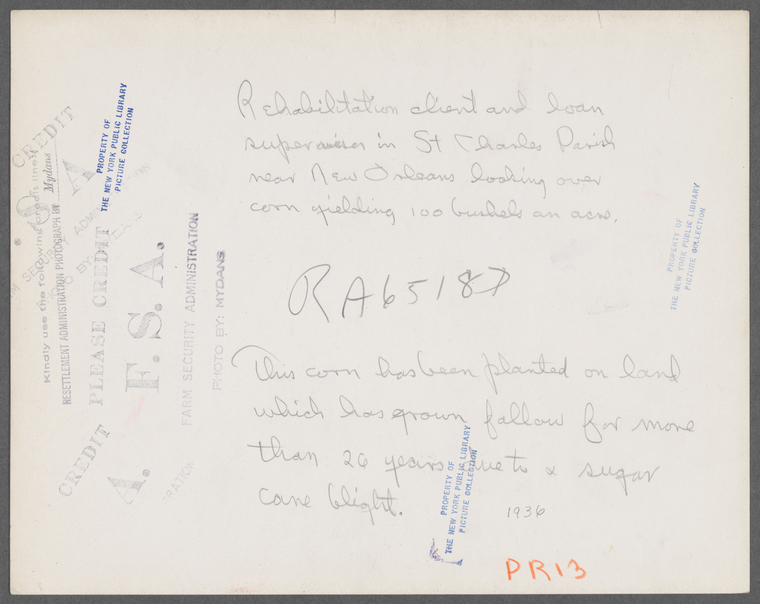 Rehabilitation client and loan
supervisor in St Charles Parish
near New Orleans looking over
corn yielding 100 bushels an acre.
RA 6518D
This corn has been planted on land
which has grown fallow for more
than 20 years due to a sugar
cane blight.
1936
PR13
PROPERTY OF
THE NEW YORK PUBLIC LIBRARY
PICTURE COLLECTION
PROPERTY OF
THE NEW YORK PUBLIC LIBRARY
PICTURE COLLECTION
PROPERTY OF
THE NEW YORK PUBLIC LIBRARY
PICTURE COLLECTION
Kindly use the following credit line:
RESETTLEMENT ADMINISTRATION PHOTOGRAPH BY Mydans
PLEASE CREDIT
F.S.A.
FARM SECURITY ADMINISTRATION
PHOTO BY: MYDANS
CREDIT
CREDIT
A.